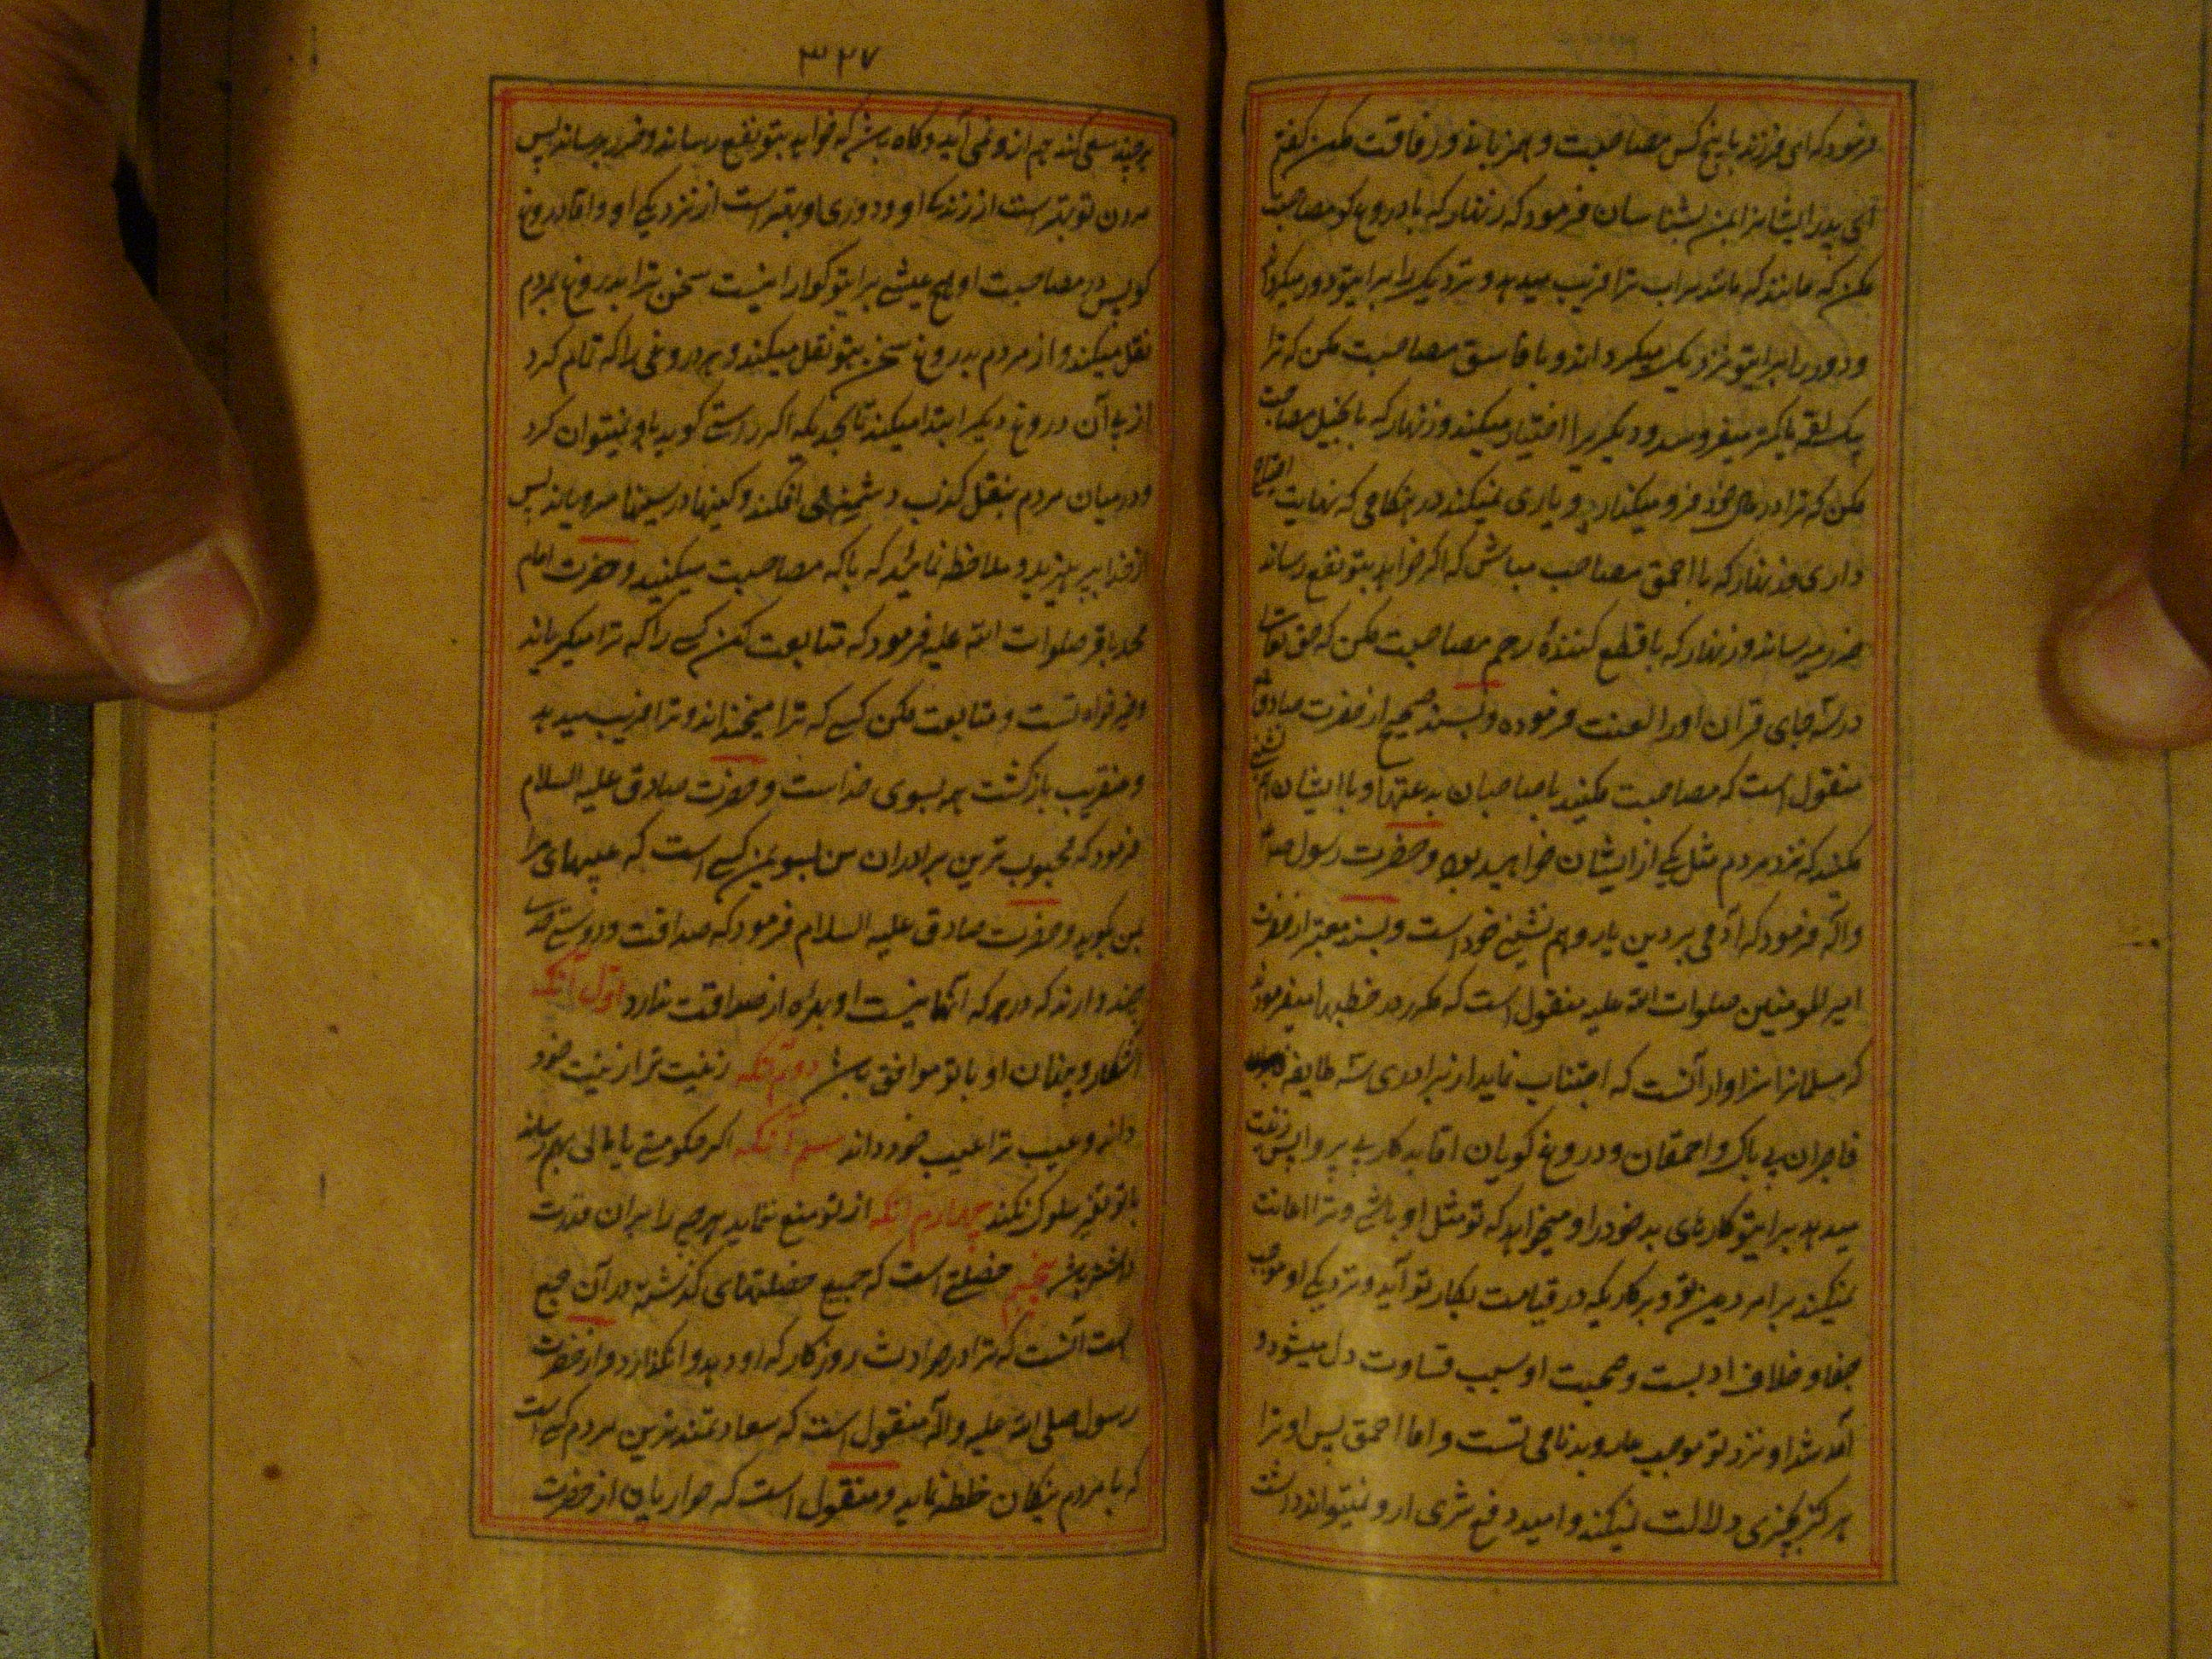 فرمود که ای فرزند با پنج کس مصاحبت و همزبانی و رفاقت مکن گفتم
ای پدر ایشانرا بمن بشناسان فرمود که زنهار که با دروغ گو مصاحبت
مکن که مانند سراب ترا فریب میدهد و نزدیک را برایتو دور میکرداند
و دور را برایتو نزدیک میکرداند و با فاسق مصاحبت مکن که ترا
بیک لقمه یا کمتر میفروشد و دیکریرا اختیار میکند و زنهار که با بخیل مصاحبت
مکن که ترا در مال خود فرو میکذارد و یاری نمیکند در هنکامی که نهایت احتیاج
داری و زنهار که با احمق مصاحب مباش که اکر خواهد بتو نفع رساند
ضرر میرساند و زنهار که با قطع کنندهٔ رحم مصاحبت مکن که حق تعالی
در سه جای قران او را لعنت فرموده و بسند صحیح از حضرت صادق
منقول است که مصاحبت مکنید با صاحبان بدعتها و با ایشان هم نشینی
مکنید که نزد مردم مثل یکی از ایشان خواهید بود و حضرت رسول ص
و اله فرمود که آدمی بر دین یار و هم نشین خود است و بسند معتبر از حضرت
امیر المومنین صلوات الله علیه منقول است که مکرر در خطبها میفرمود
که مسلمانرا سزاوار آنست که اجتناب نماید از برادری سه طایفه
فاجران بی باک و احمقان و دروغ کویان اما بدکار بی پروا پس زینت
میدهد برایتو کارهای بد خود را و میخواهد که تو مثل او باشی و ترا اعانت
نمیکند بر امر دین تو و بر کاریکه در قیامت بکار تو آید و نزدیکی او موجب
جفا و خلاف ادبست و صحبت او سبب قساوت دل میشود و
آمد شد او نزد تو موجب عار و بدنامی تست و اما احمق پس او ترا
هرکز بچیزی دلالت نمیکند و امید دفع شری از او نمیتوان داشت
۳۲۷
هر چند سعی کند هم از او نمی آید و کاه باشد که خواهد بتو نفع رساند و ضرر برساند پس
مردن تو بهتر است از زندکی او و دوری او بهتر است از نزدیکی او و اما دروغ
کو پس در مصاحبت او هیچ عیشی برایتو کوارا نیست سخن ترا بدروغ بمردم
نقل میکند و از مردم بدروغ سخن بتو نقل میکند و هر دروغی را که تمام کرد
از پی آن دروغ دیکر ابتدا میکند تا بحدیکه اکر راست کوید باور نمیتوان کرد
و در میان مردم بنقل کذب دشمنیها می افکند و کینها در سینها میرویاند پس
از خدا بپرهیزید و ملاحظه نمائید که با که مصاحبت میکنید و حضرت امام
محمد باقر صلوات الله علیه فرمود که متابعت کن کسی را که ترا میکریاند
و خیر خواه تست و متابعت مکن کسی که ترا میخنداند و ترا فریب میدهد
و عنقریب بازکشت همه بسوی خداست و حضرت صادق علیه السلام
فرمود که محبوب ترین برادران من بسوی من کسی است که عیبهای مرا
بمن بکوید و حضرت صادق علیه السلام فرمود که صداقت و دوستی حدی
چند دارند که در هر که آنها نیست او بهره از صداقت ندارد اول آنکه
آشکار و پنهان او با تو موافق باشد دوم آنکه زینت ترا زینت خود
داند و عیب ترا عیب خود داند سیم آنکه اکر حکومتی یا مالی بهم رساند
با تو تغیر سلوک نکند چهارم آنکه از تو منع ننماید هر چه را بر ان قدرت
داشته باشد پنجم خصلتی است که جمیع خصلتهای کذشته در آن جمع
است آنست که ترا در حوادث روزکار که رو دهد وانکذارد و از حضرت
رسول صلی الله علیه و اله منقول است که سعادتمندترین مردم کسی است
که با مردم نیکان خلطه نماید و منقول است که حواریان از حضرت